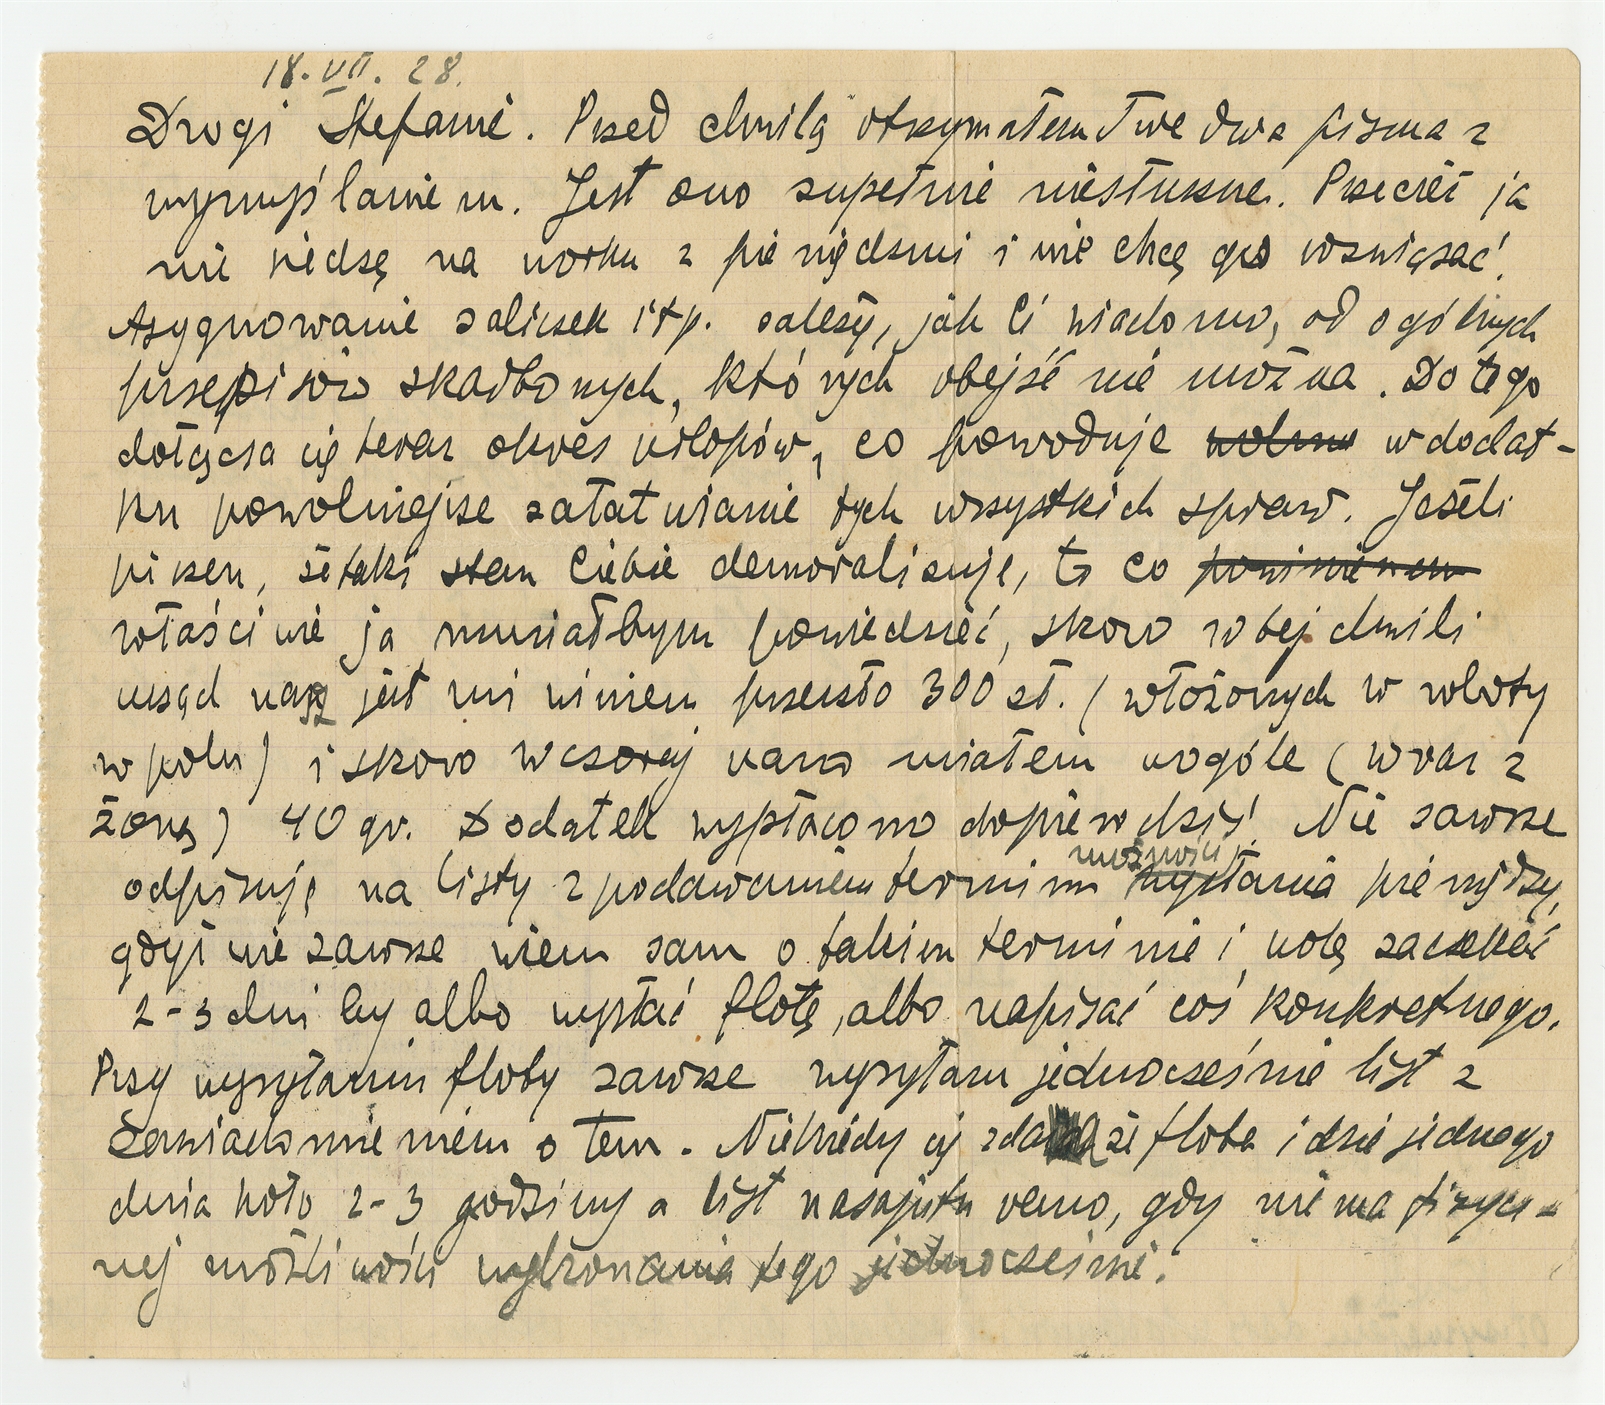 18.VII.28.
Drogi Stefanie. Przed chwilą otrzymałem Twe dwa pisma z
wymyślaniem. Jest ono zupełnie niesłuszne. Przecież ja
nie siedzę na worku z pieniędzmi i nie chcę go rozwiązać.
Asygnowanie zaliczek itp. zależy, jak Ci wiadomo, od ogólnych
przepisów skarbowych, których obejść nie można. Do tego
dołącza się teraz okres urlopów, co powoduje wolne w dodat-
ku powolniejsze załatwianie tych wszystkich spraw. Jeżeli
piszesz, że taki stan Ciebie demoralizuje, to co powinienem
właściwie ja musiałbym powiedzieć, skoro w tej chwili
urząd nasz jest mi winien przeszło 300 zł. (włożonych w roboty
w polu) i skoro wczoraj rano miałem wogóle (wraz z
żoną) 40 gr. Dodatek wypłacono dopiero dziś! Nie zawsze
odpisuję na listy z podawaniem terminu możności wysłania pieniędzy,
gdyż nie zawsze wiem sam o takim terminie i wolę zaczekać
2-3 dni by albo wysłać flotę, albo napisać coś konkretnego.
Przy wysyłaniu floty zawsze wysyłam jednocześnie list z
zawiadomieniem o tem. Niekiedy się zdarza że flota idzie jednego
dnia koło 2-3 godziny a list nazajutrz rano, gdy nie ma fizycz-
nej możliwości wykonania tego jednocześnie.